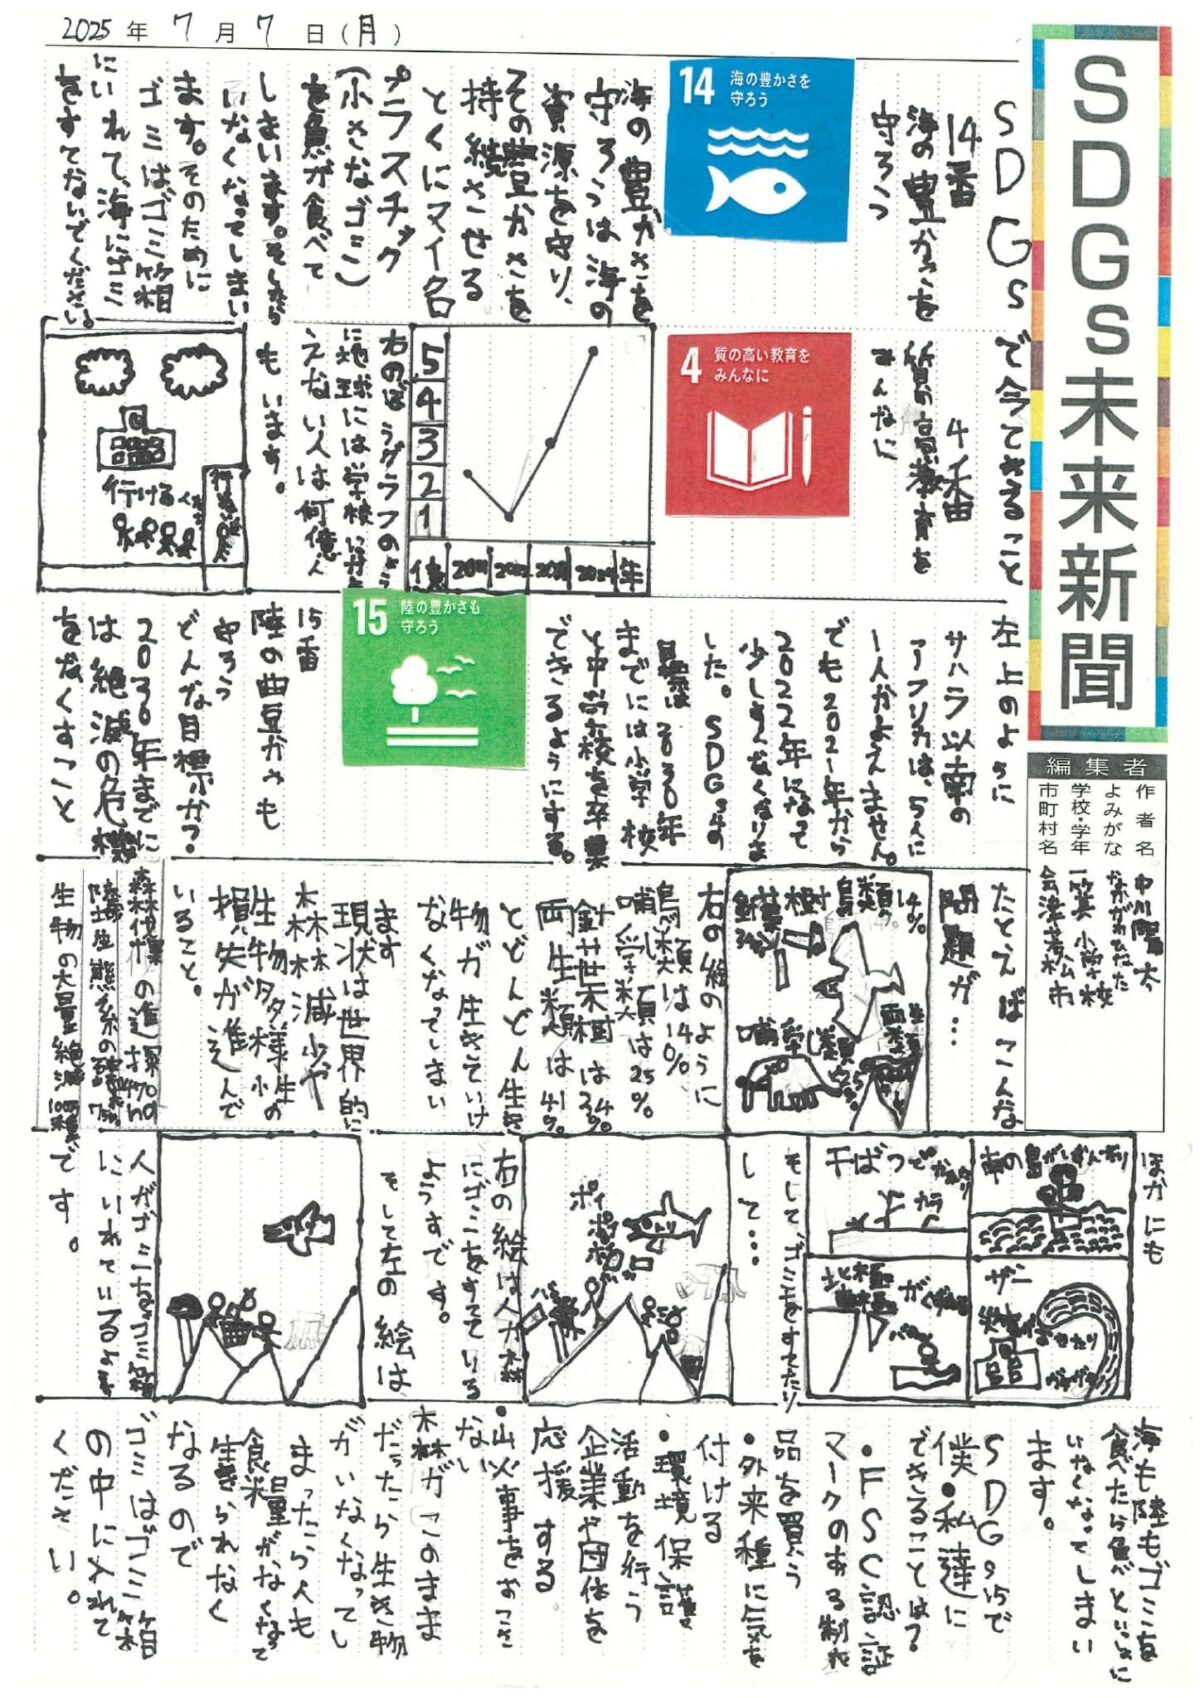 2025年7月7日(月)
SDGs未来新聞
編集者
作者名
よみがな
学校・学年
一箕小学校
市町村名
会津若松市
SDGsで今できること
14番
海の豊かさを
守ろう
14
海の豊かさを
守ろう
海の豊かさを
守ろうは海の
資源を守り、
その豊かさを
持続させる
とくにマイ名
プラスチック
(小さなゴミ)
を魚が食べて
しまいます。そしたら
いなくなってしまい
ます。そのために
ゴミはゴミ箱
にいれて、海にゴミ
をすてないでください。
4番
質の高い教育を
みんなに
4
質の高い教育を
みんなに
5
4
3
2
1
億
2021
2022
2024年
右のぼうグラフのよう
に地球には学校に行
えない人は何億人
もいます。
行ける
左上のように
サハラ以南の
アフリカは、5人に
一人かよえません。
でも2021年から
2022年になって
少しすくなくなりま
した。SDGs4の
目標は2030年
までには小学校
と中学校を卒業
できるようにする。
15
陸の豊かさも
守ろう
15番
陸の豊かさも
守ろう
どんな目標か?
2030年までに
は絶滅の危機
をなくすこと
たとえばこんな
問題が…
鳥類
14%
針葉樹
34%
哺乳類
両生類
右の絵のように
鳥類は14%
哺乳類は25%
針葉樹は34%
両生類は41%
とどんどん生き
物が生きていけ
なくなってしまい
ます
現状は世界的に
森林減少や
生物多様性の
損失が進んで
いること。
生物の大量絶滅
です。
ほかにも
南の島がしずんだり
干ばつで
カラカラ
北極
ザー
そして、ゴミをすてたり
して…
ポイ
ポイ
右の絵は人が森
にゴミをすてている
ようすです。
そして左の絵は
人がゴミをゴミ箱
にいれているようす
海も陸もゴミを
食べたら魚がといっしょに
いなくなってしまい
ます。
SDGs15で
僕・私達に
できることは?
・FSC認証
マークのある製
品を買う
・外来種に気を
付ける
・環境保護
活動を行う
企業や団体を
応援する
・山火事をおこさ
ない
森がこのまま
だったら生き物
がいなくなってし
まったら人も
食料量がなくなって
生きられなく
なるので
ゴミはゴミ箱
の中に入れて
ください。